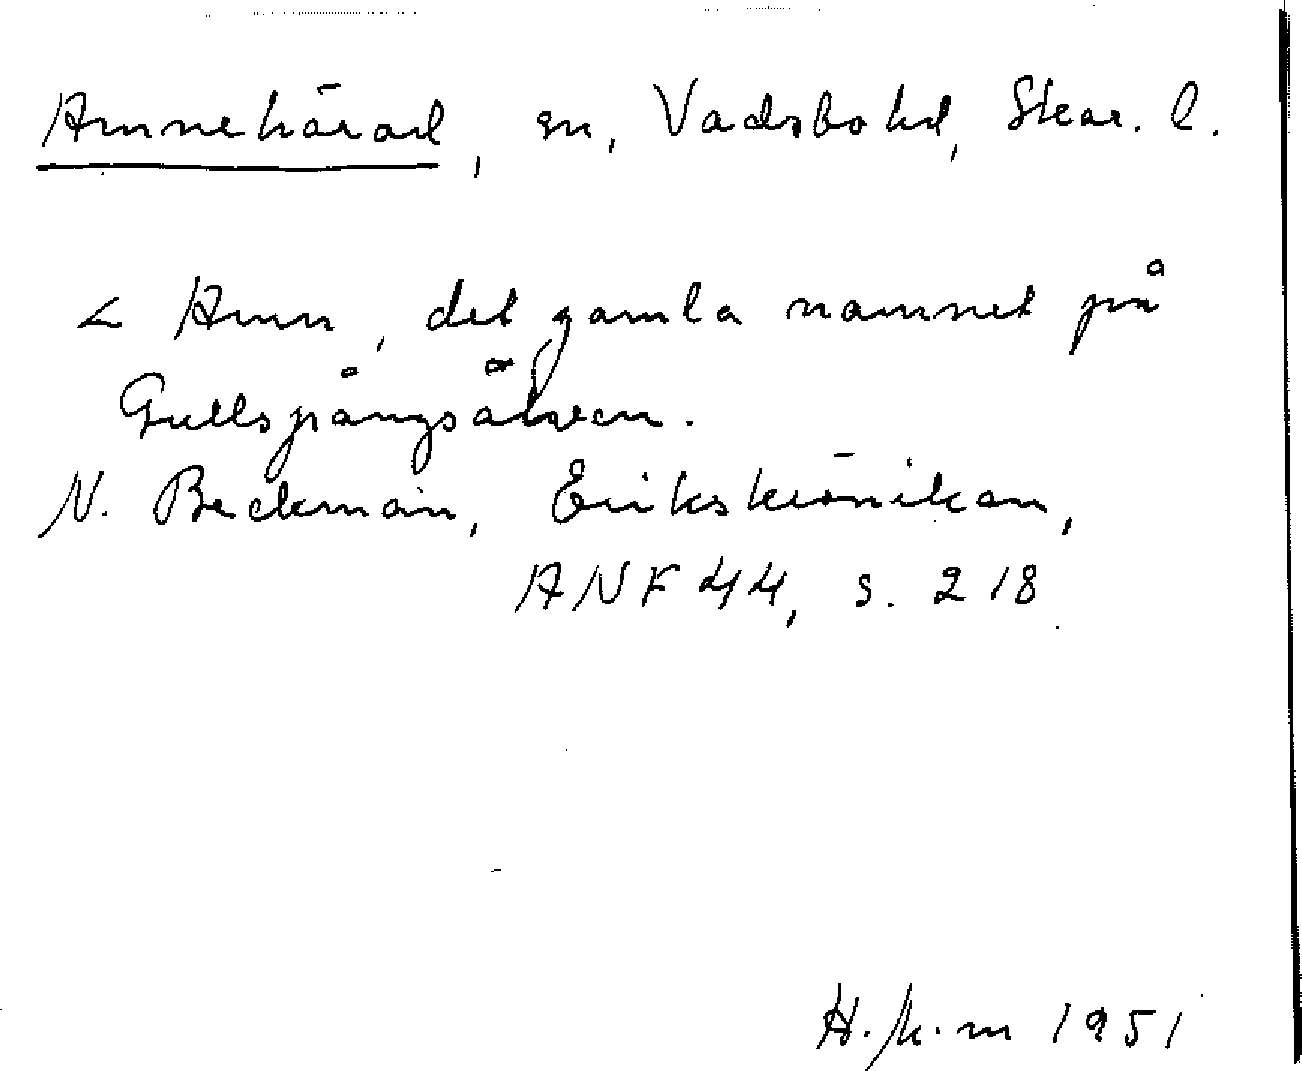 Amnehärad, sn, Vadsbo hd, Skar. l.
< Amn, det gamla namnet på
Gullspångsälven.
N. Beckman, Erikskrönikan,
ANF 44, s. 218
1951